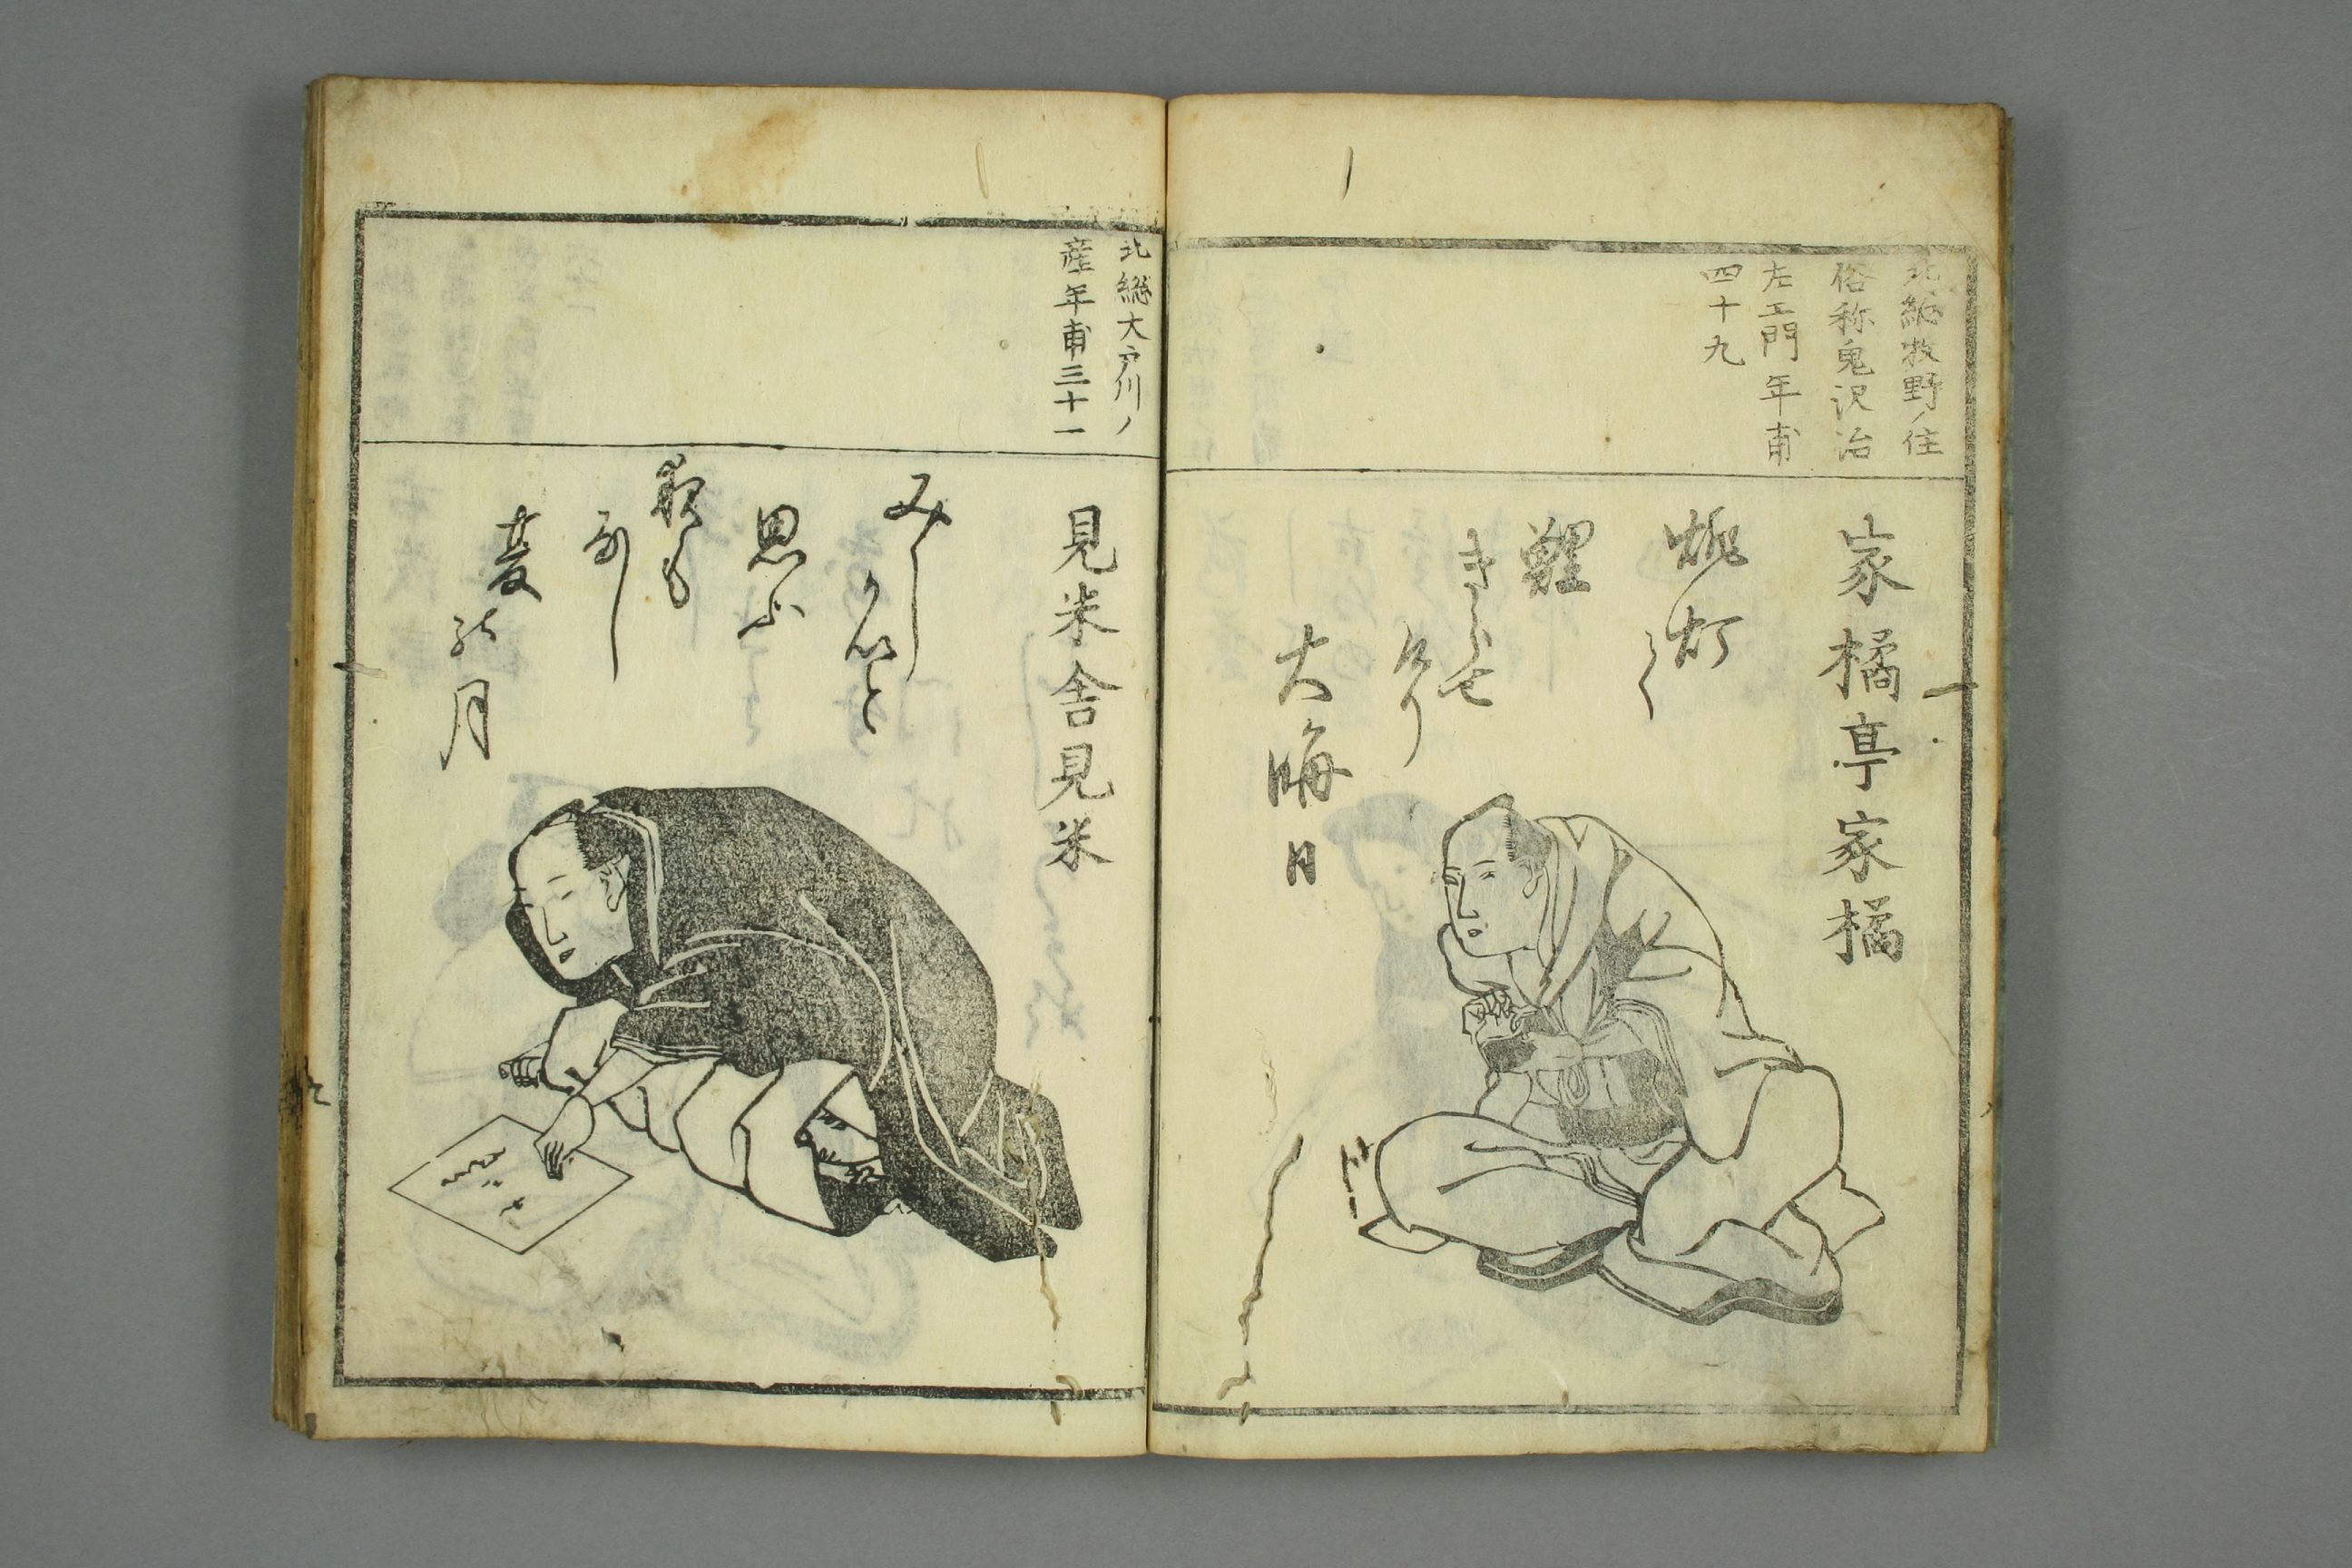 北総牧野ノ住
俗称鬼沢治
左エ門年甫
四十九
家橘亭家橘
挑灯
鯉
きらせ
けり
大晦日
北総大戸川ノ
産年甫三十一
見米舎見米
みし
かいと
思ふ
夜も
なし
夏の月